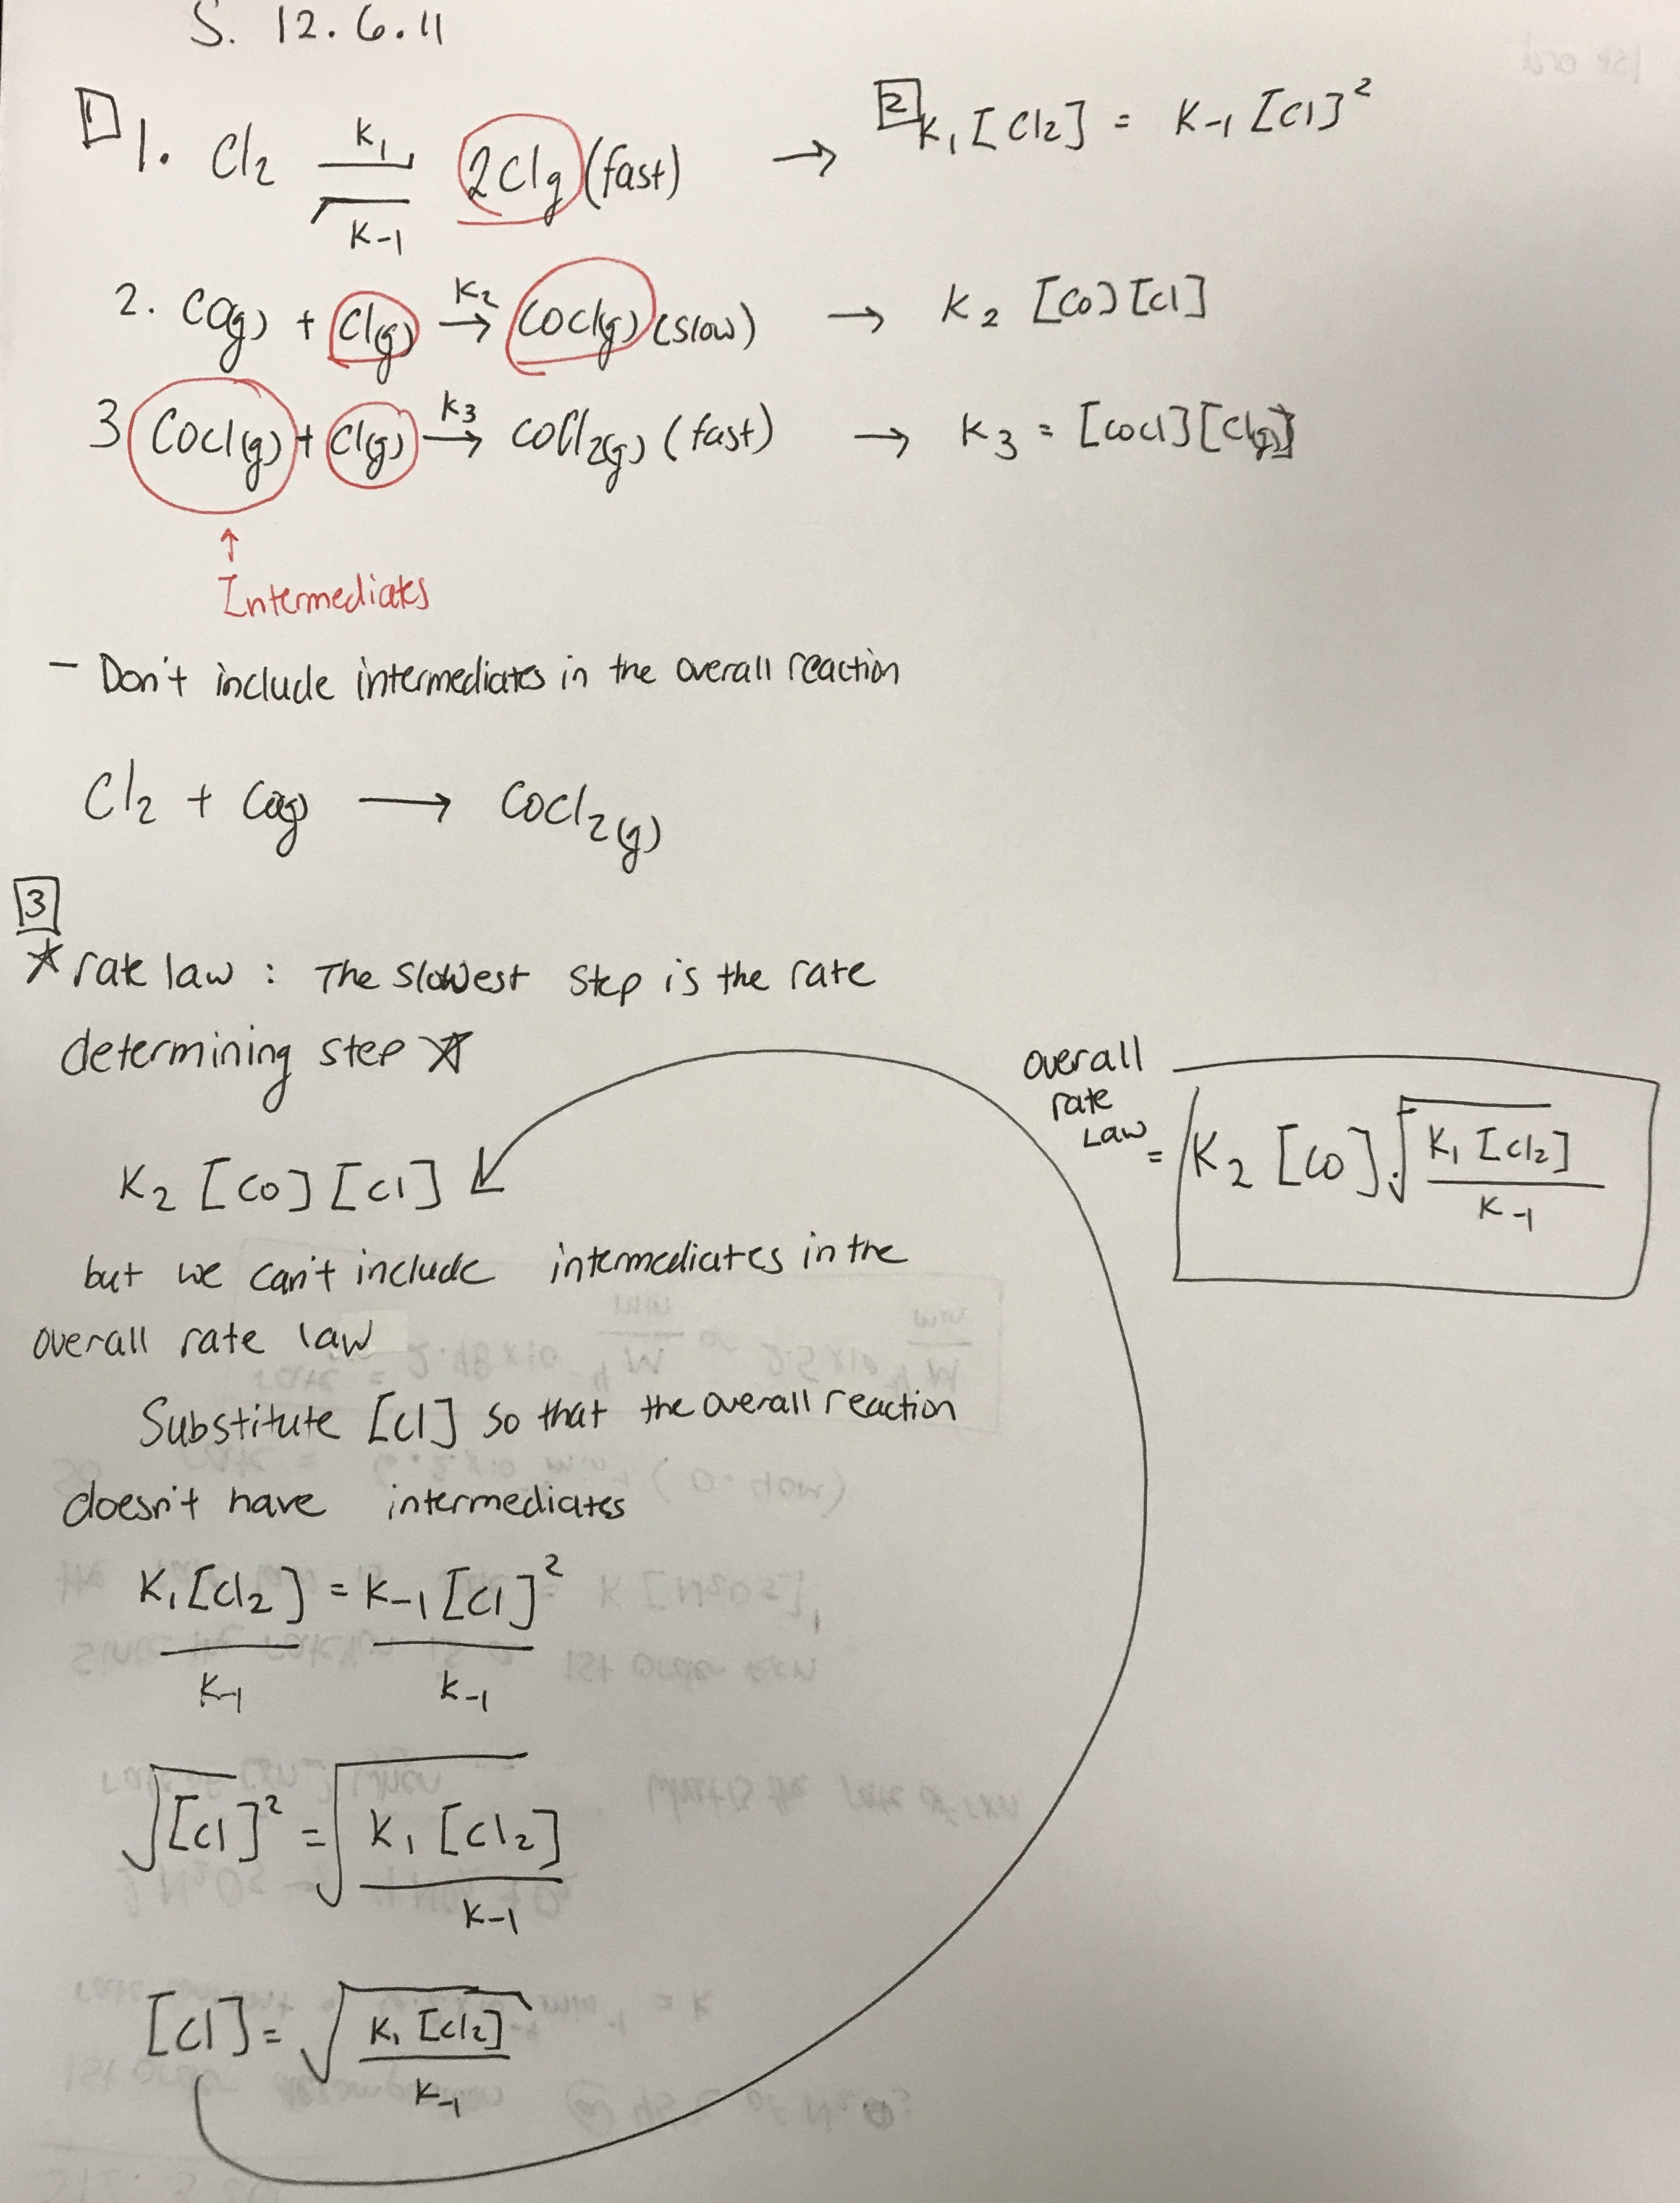 S. 12.6.11
1 1. Cl2 K1 K-1 2Clg (fast) → 2 K1[Cl2] = K-1[Cl]²
2. CO(g) + Cl(g) K2 → COCl(g) (slow) → K2 [CO][Cl]
3 COCl(g) + Cl(g) K3 → COCl2(g) (fast) → K3 = [COCl][Cl(g)]
↑
Intermediates
- Don't include intermediates in the overall reaction
Cl2 + CO(g) → COCl2(g)
3
☆ rate law : The slowest step is the rate
determining step ☆
K2 [CO][Cl]
but we can't include intermediates in the
overall rate law
Substitute [Cl] so that the overall reaction
doesn't have intermediates
K1[Cl2] = K-1[Cl]²
K-1 K-1
√[Cl]² = √K1 [Cl2]
K-1
[Cl] = √K1 [Cl2]
K-1
overall
rate
Law
= K2 [CO] √K1 [Cl2]
K-1